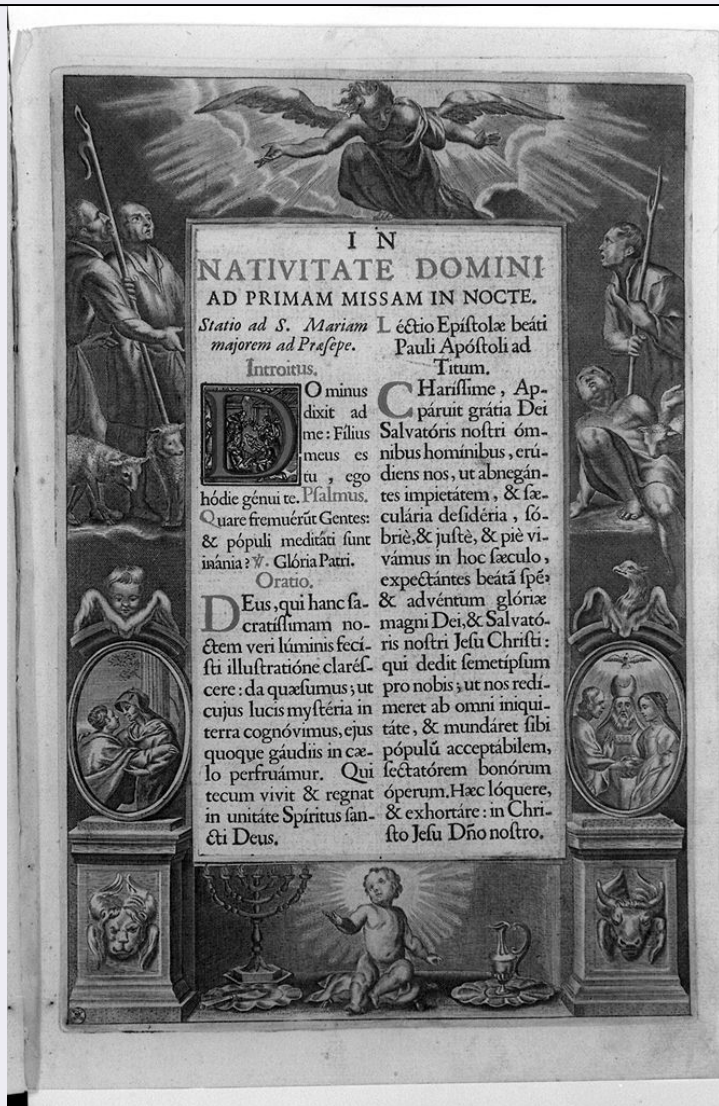 IN
NATIVITATE DOMINI
AD PRIMAM MISSAM IN NOCTE.
Statio ad S. Mariam
majorem ad Præsepe.
Introitus.
DOminus
dixit ad
me : Fílius
meus es
tu , ego
hódie génui te. Psalmus.
Quare fremuérũt Gentes:
& pópuli meditáti ſunt
inánia? ℣. Glória Patri.
Oratio.
DEus, qui hanc ſa-
cratíſſimam no-
ctem veri lúminis fecí-
ſti illuſtratióne claréſ-
cere : da quæſumus ; ut
cujus lucis myſtéria in
terra cognóvimus, ejus
quoque gáudiis in cæ-
lo perfruámur. Qui
tecum vivit & regnat
in unitáte Spíritus ſan-
cti Deus.
Léctio Epíſtolæ beáti
Pauli Apóſtoli ad
Titum.
CHariſſime, Ap-
páruit grátia Dei
Salvatóris noſtri óm-
nibus homínibus, erú-
diens nos, ut abnegán-
tes impietátem, & ſæ-
culária deſidéria, ſó-
briè, & juſtè, & piè vi-
vámus in hoc ſæculo,
expectántes beátã ſpẽ,
& advéntum glóriæ
magni Dei, & Salvató-
ris noſtri Jeſu Chriſti :
qui dedit ſemetípſum
pro nobis ; ut nos redí-
meret ab omni iniqui-
táte, & mundáret ſibi
pópulũ acceptábilem,
ſectatórem bonórum
óperum. Hæc lóquere,
& exhortáre : in Chri-
ſto Jeſu Dño noſtro.